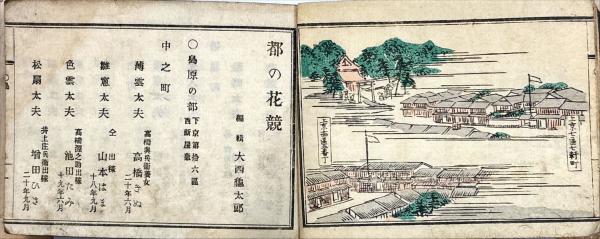 上京七區七軒町
都の花競
編輯 大西龜太郎
〇島原の部 下京第拾六區
西新屋敷
中之町
薄雲太夫
高橋與兵衛養女
高橋きぬ
二十年六月
雛窓太夫
仝 出稼
山本はま
十八年九月
色雲太夫
高橋源之助出稼
池田たみ
十九年六月
松扇太夫
井上庄兵衛出稼
増田ひさ
二十年九月